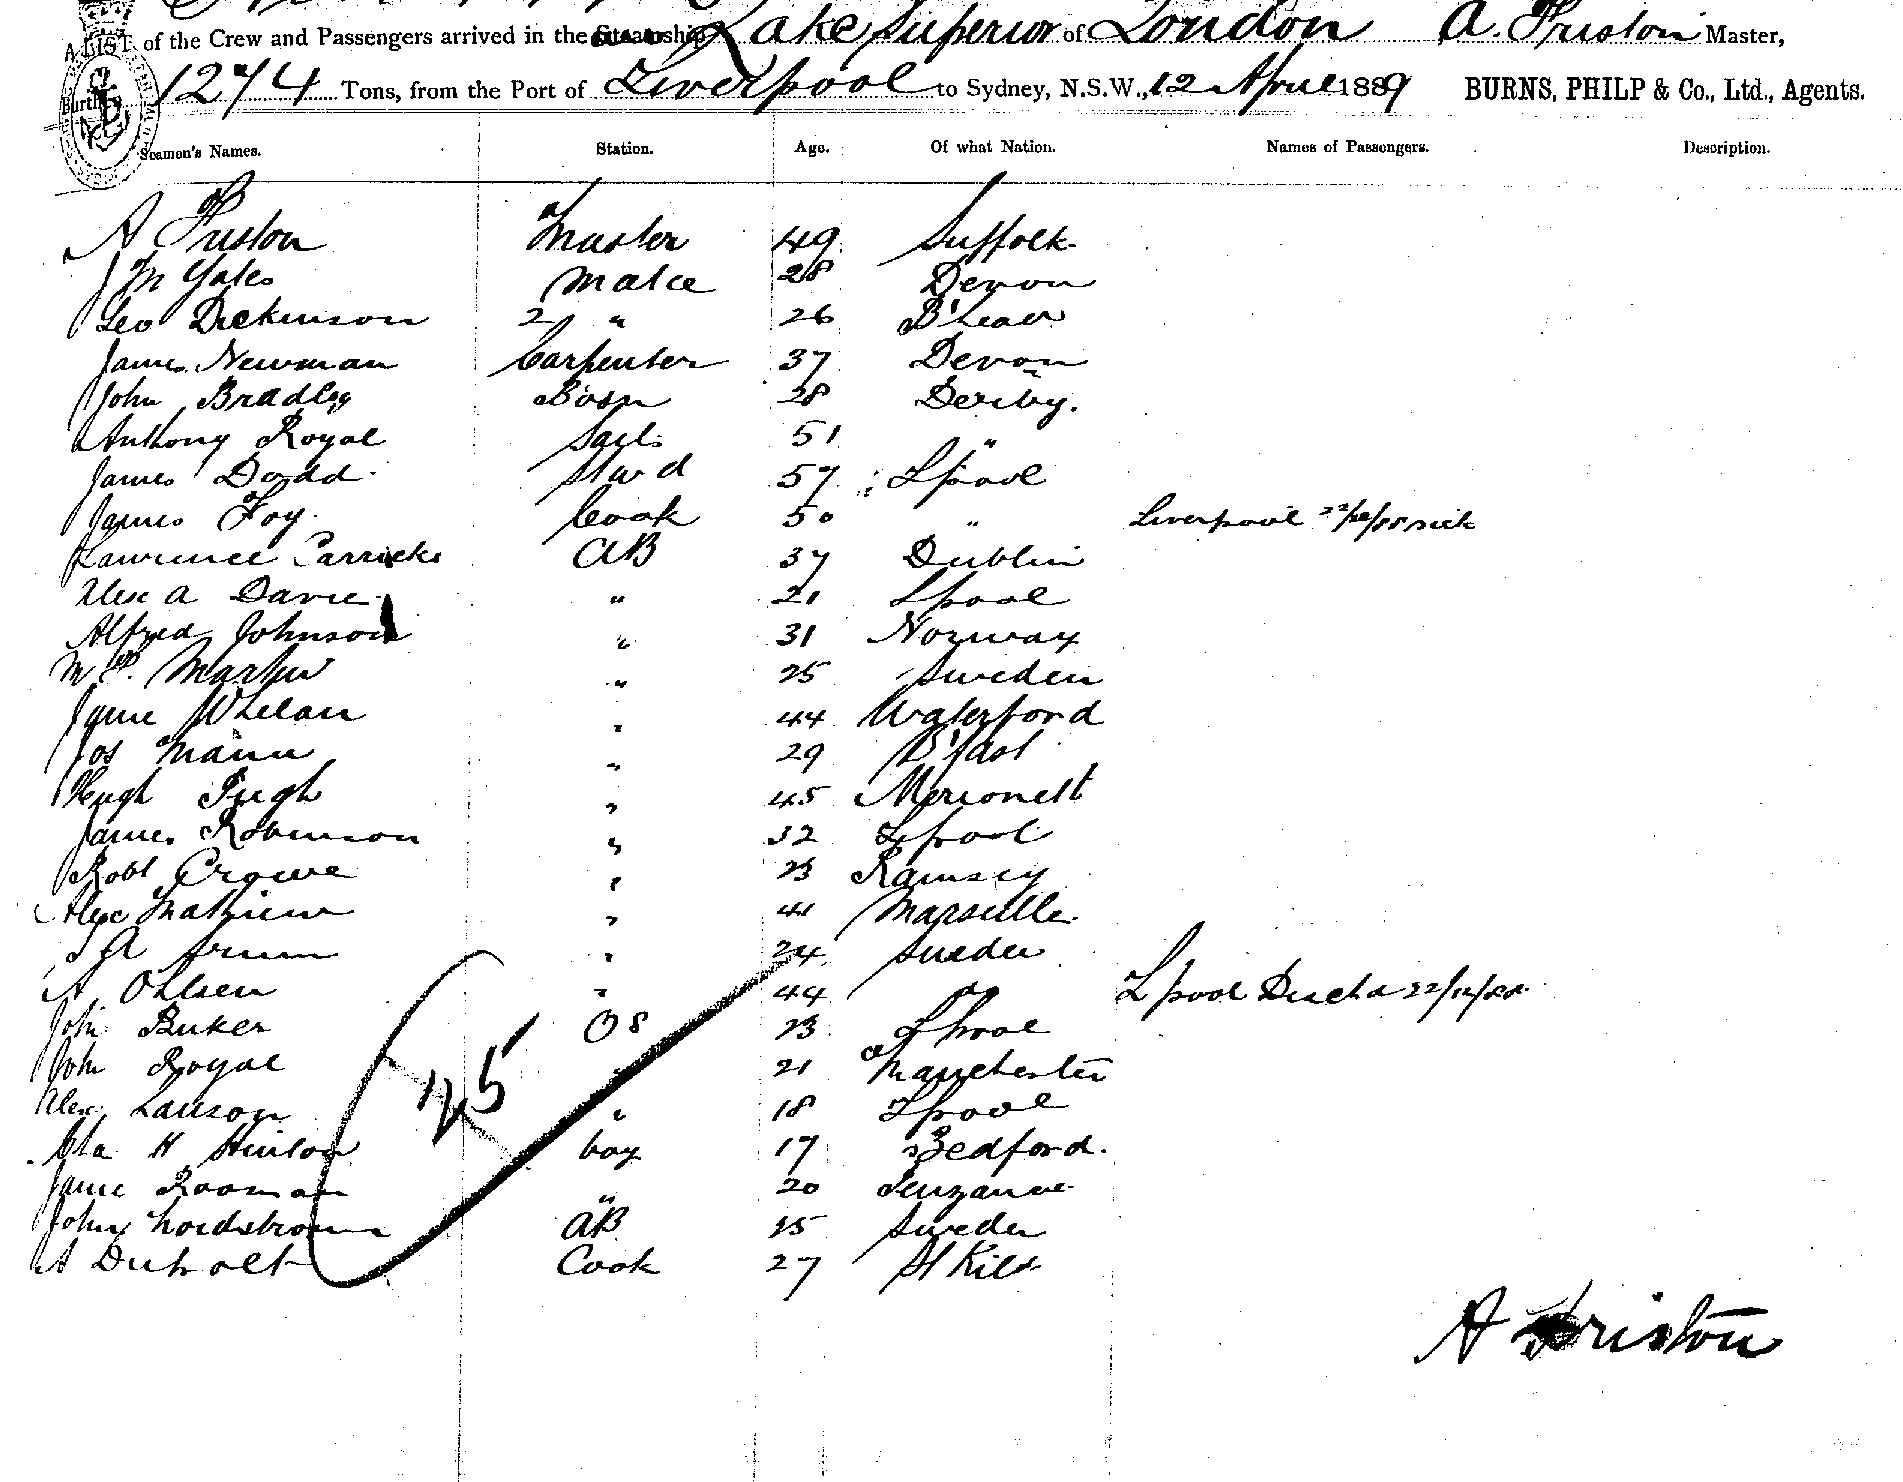 A LIST of the Crew and Passengers arrived in the Steamship Lake Superior of London A. Friston Master,
Burthen 1274 Tons, from the Port of Liverpool to Sydney, N.S.W., 12 April 1889 BURNS, PHILP & Co., Ltd., Agents.
Seamen's Names. Station. Age. Of what Nation. Names of Passengers. Description.
A Friston Master 49 Suffolk
J M Yates Mate 28 Devon
Geo Dickinson 2 " 26 B'head
James Newman Carpenter 37 Devon
John Bradley Bosn 28 Derby.
Anthony Royal Sails 51 "
James Dodd Stwd 57 Lpool
James Foy Cook 50 " Liverpool 22/12/88 sick
Lawrence Carrick AB 37 Dublin
Alex A Davie " 21 Lpool
Alfred Johnson " 31 Norway
M P. Martin " 25 Sweden
Jame Whelan " 44 Waterford
Jos Mann " 29 B'fast
Hugh Pugh " 45 Merioneth
James Robinson " 32 Lpool
Robt Crowe " 23 Ramsey
Alex Mathiew " 41 Marseille
A " 24 Sweden
A Ohlsen " 44 " Lpool Dischd 22/12/88
John Buker OS 23 Lpool
John Royal " 21 Manchester
Alex Lawson " 18 Lpool
Cha H Hinton boy 17 Bedford.
Jame Rooman " 20 Penzance
John Nordstrom AB 25 Sweden
A Cook 27 St Kilda
25
A Friston